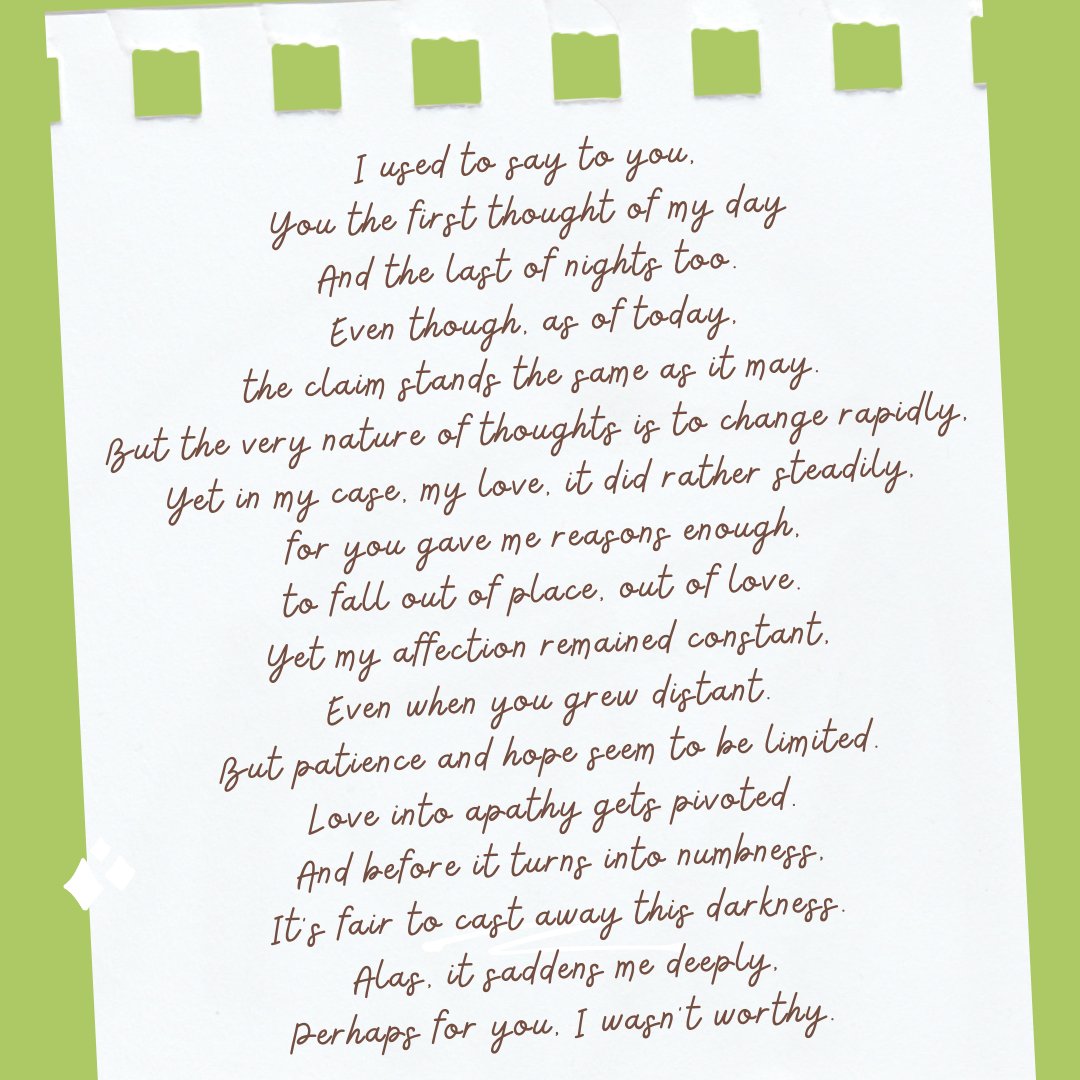 I used to say to you,
You the first thought of my day
And the last of nights too.
Even though, as of today,
the claim stands the same as it may.
But the very nature of thoughts is to change rapidly,
Yet in my case, my love, it did rather steadily,
for you gave me reasons enough,
to fall out of place, out of love.
Yet my affection remained constant,
Even when you grew distant.
But patience and hope seem to be limited.
Love into apathy gets pivoted.
And before it turns into numbness,
It's fair to cast away this darkness.
Alas, it saddens me deeply,
Perhaps for you, I wasn't worthy.